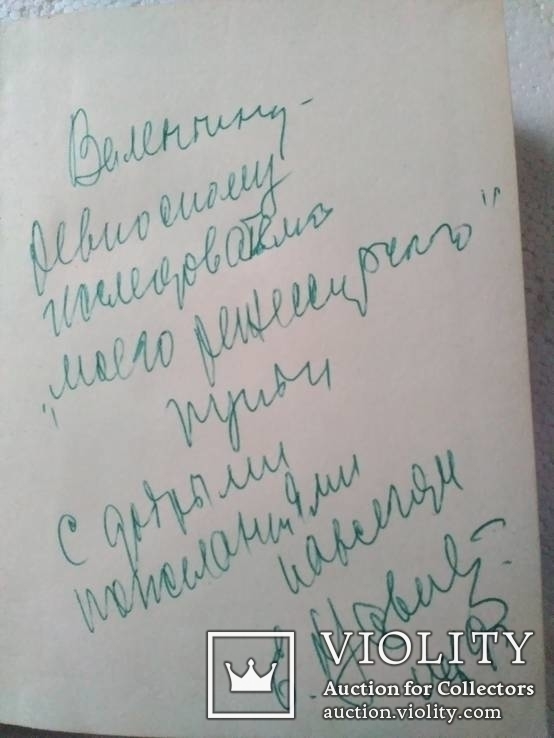 Валентину -
ревностному
исследователю
"моего режиссерского"
пути
С добрыми
пожеланиями
навсегда
VIOLITY
Auction for Collectors
auction.violity.com